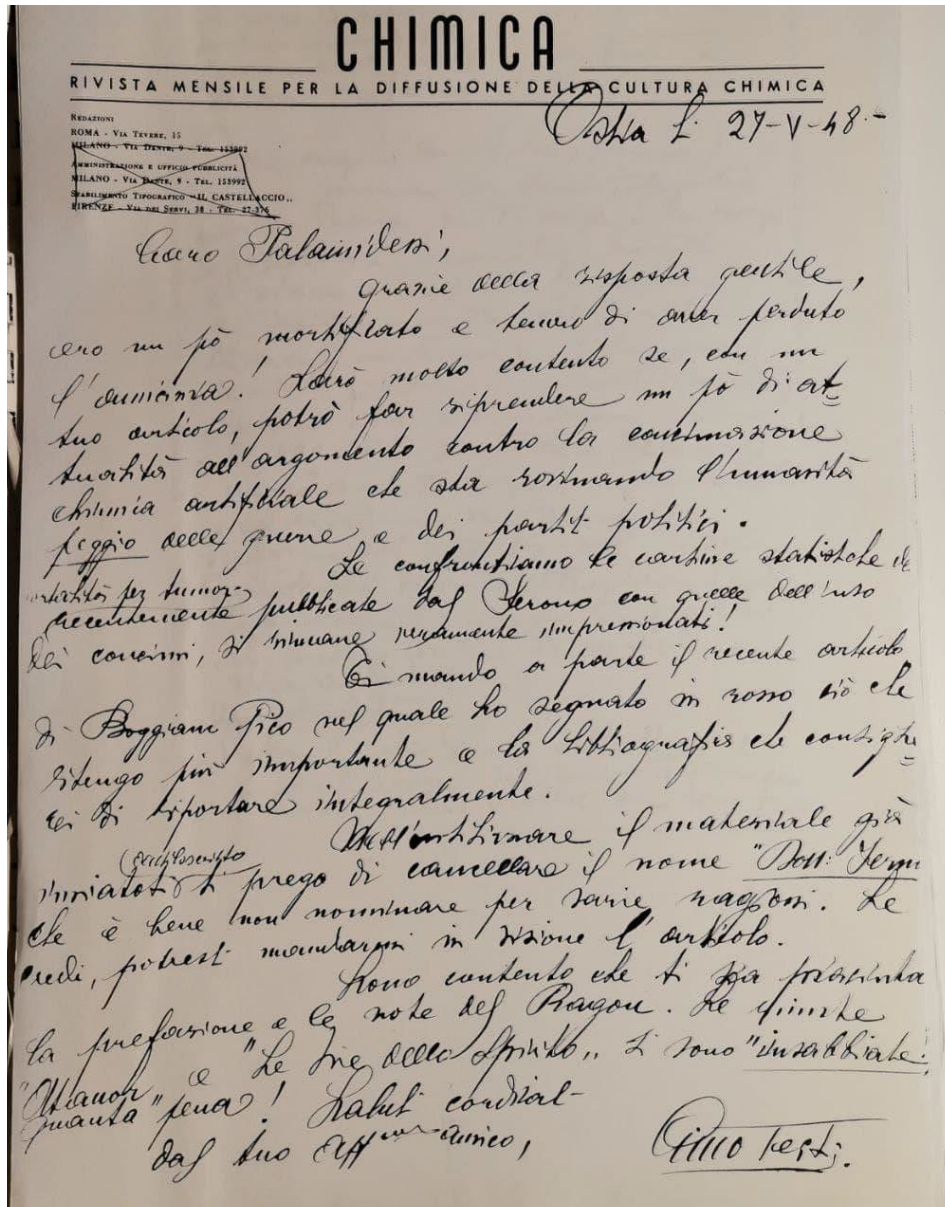 CHIMICA
RIVISTA MENSILE PER LA DIFFUSIONE DELLA CULTURA CHIMICA
REDAZIONI
ROMA - VIA TEVERE, 15
MILANO - VIA DANTE, 9 - TEL. 153992
AMMINISTRAZIONE E UFFICIO PUBBLICITÀ
MILANO - VIA DANTE, 9 - TEL. 153992
STABILIMENTO TIPOGRAFICO "IL CASTELLACCIO„
FIRENZE - VIA DEI SERVI, 38 - TEL. 27-376
Ostia L. 27-V-48.-
Caro Palamidessi,
grazie della risposta gentile,
ero un pò mortificato e temevo di aver perduto
l'amicizia! Sarò molto contento se, con un
tuo articolo, potrò far riprendere un pò di at=
tualità all'argomento contro la concimazione
chimica artificiale che sta rovinando l'umanità
peggio delle guerre e dei partiti politici.
Se confrontiamo le cartine statistiche di
mortalità per tumori
recentemente pubblicate dal Serono con quelle dell'uso
dei concimi, si rimane veramente impressionati!
Ti mando a parte il recente articolo
di Boggiano Pico nel quale ho segnato in rosso ciò che
ritengo più importante e la bibliografia che consiglie=
rei di riportare integralmente.
Nell'utilizzare il materiale già
(dattiloscritto)
inviatoti ti prego di cancellare il nome "Dott:
che è bene non nominare per varie ragioni. Se
credi, potresti mandarmi in visione l'articolo.
Sono contento che ti sia piaciuta
la prefazione e le note del Ragon. Le riviste
"Atanor" e "Le Vie dello Spirito„ si sono "insabbiate!
quanta pena! Saluti cordiali
dal tuo aff.mo amico,
Gino Testi.